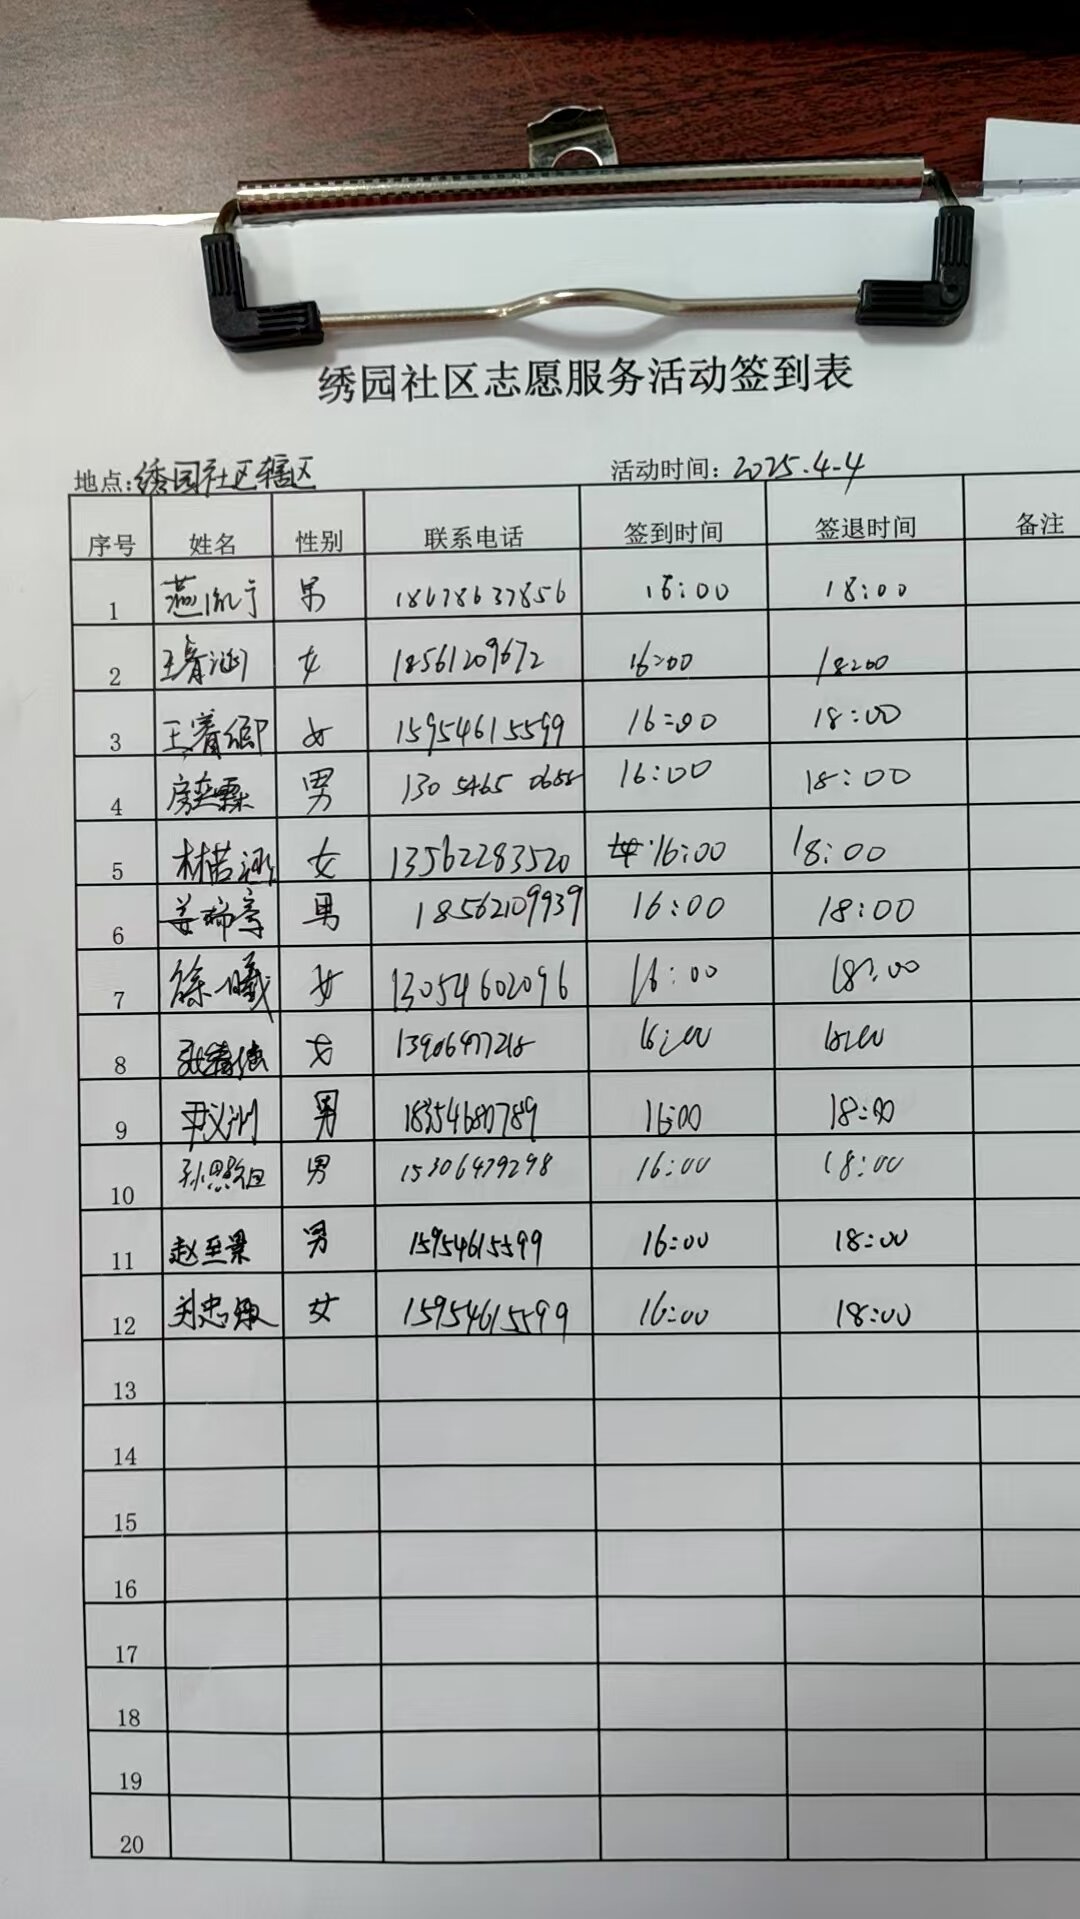 绣园社区志愿服务活动签到表
地点:绣园社区辖区 活动时间：2025.4-4
序号 姓名 性别 联系电话 签到时间 签退时间 备注
1 男 18678637856 16:00 18:00
2 女 18561209672 16:00 18:00
3 女 15954615599 16:00 18:00
4 男 130 5465 0688 16:00 18:00
5 林若涵 女 13562283520 16:00 18:00
6 男 18562109939 16:00 18:00
7 徐一曦 女 13054602096 16:00 18:00
8 女 16:00 18:00
9 尹义洲 男 18354680789 16:00 18:00
10 男 15306479298 16:00 18:00
11 赵至景 男 15954615599 16:00 18:00
12 刘忠敏 女 15954615599 16:00 18:00
13
14
15
16
17
18
19
20